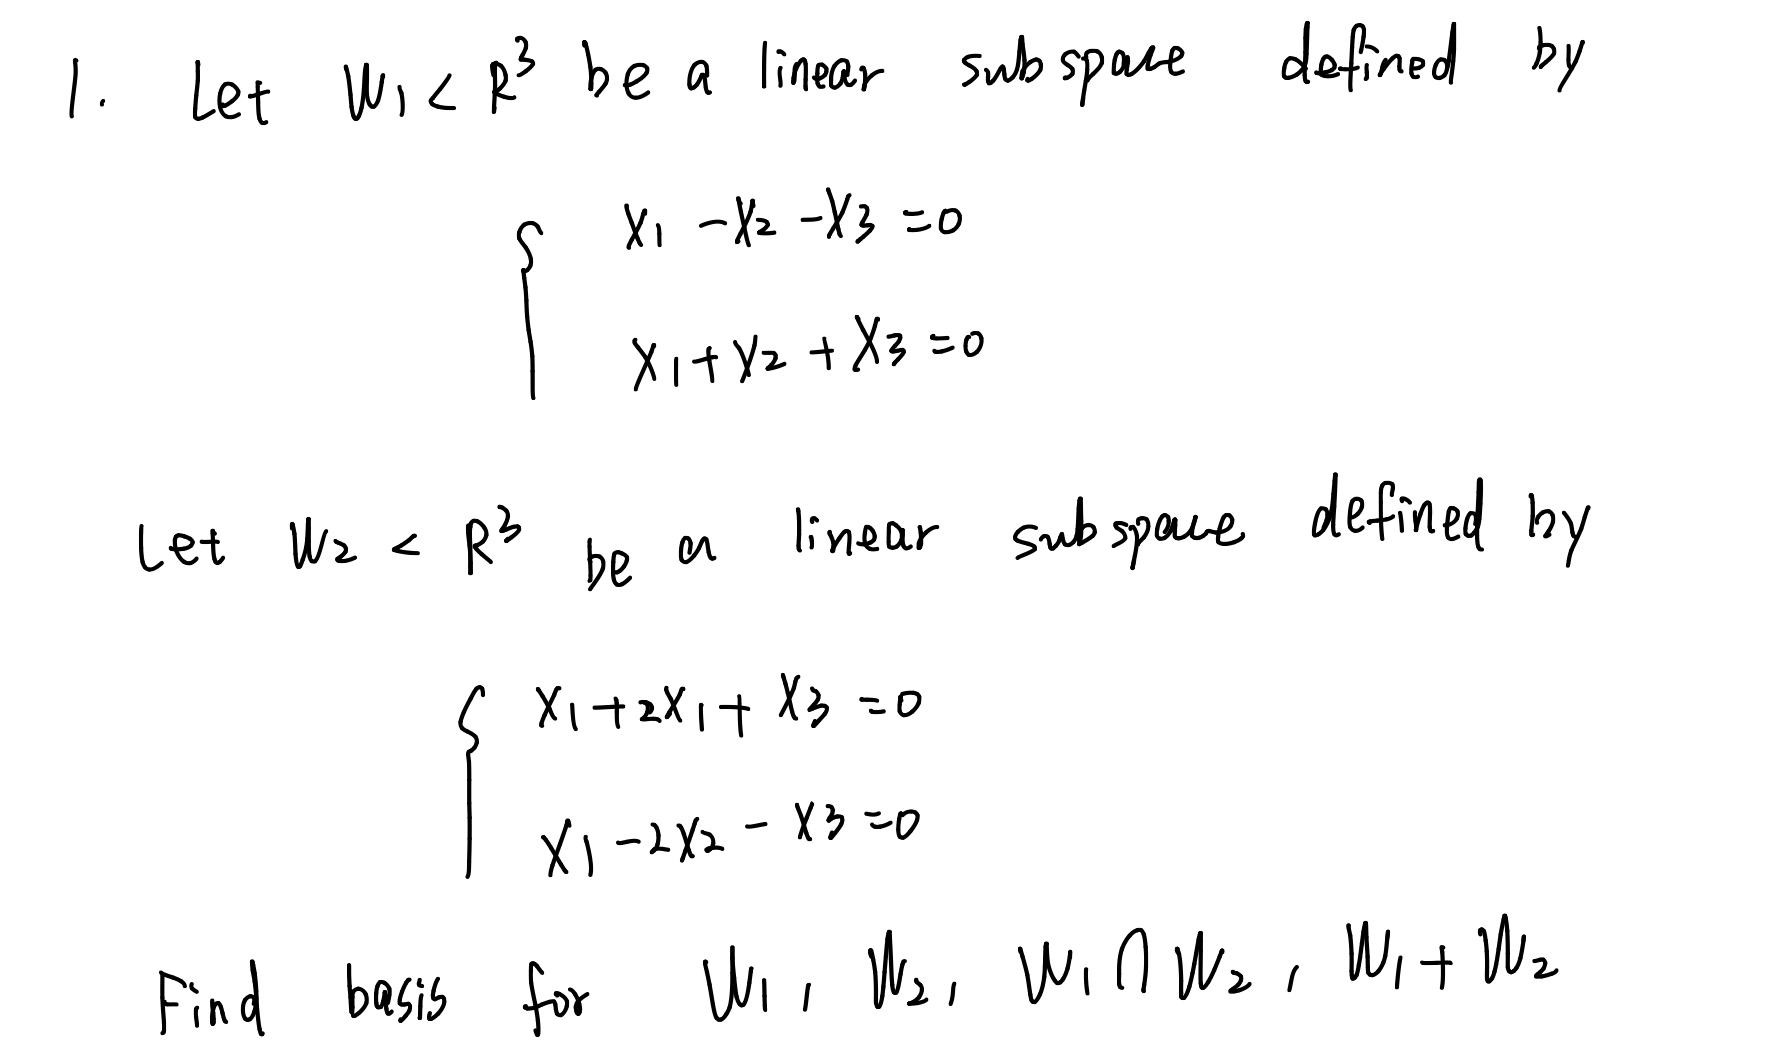 1. Let W₁ < R³ be a linear subspace defined by
x₁ - x₂ - x₃ = 0
x₁ + x₂ + x₃ = 0
Let W₂ < R³ be a linear subspace defined by
x₁ + 2x₁ + x₃ = 0
x₁ - 2x₂ - x₃ = 0
Find basis for W₁, W₂, W₁ ∩ W₂, W₁ + W₂